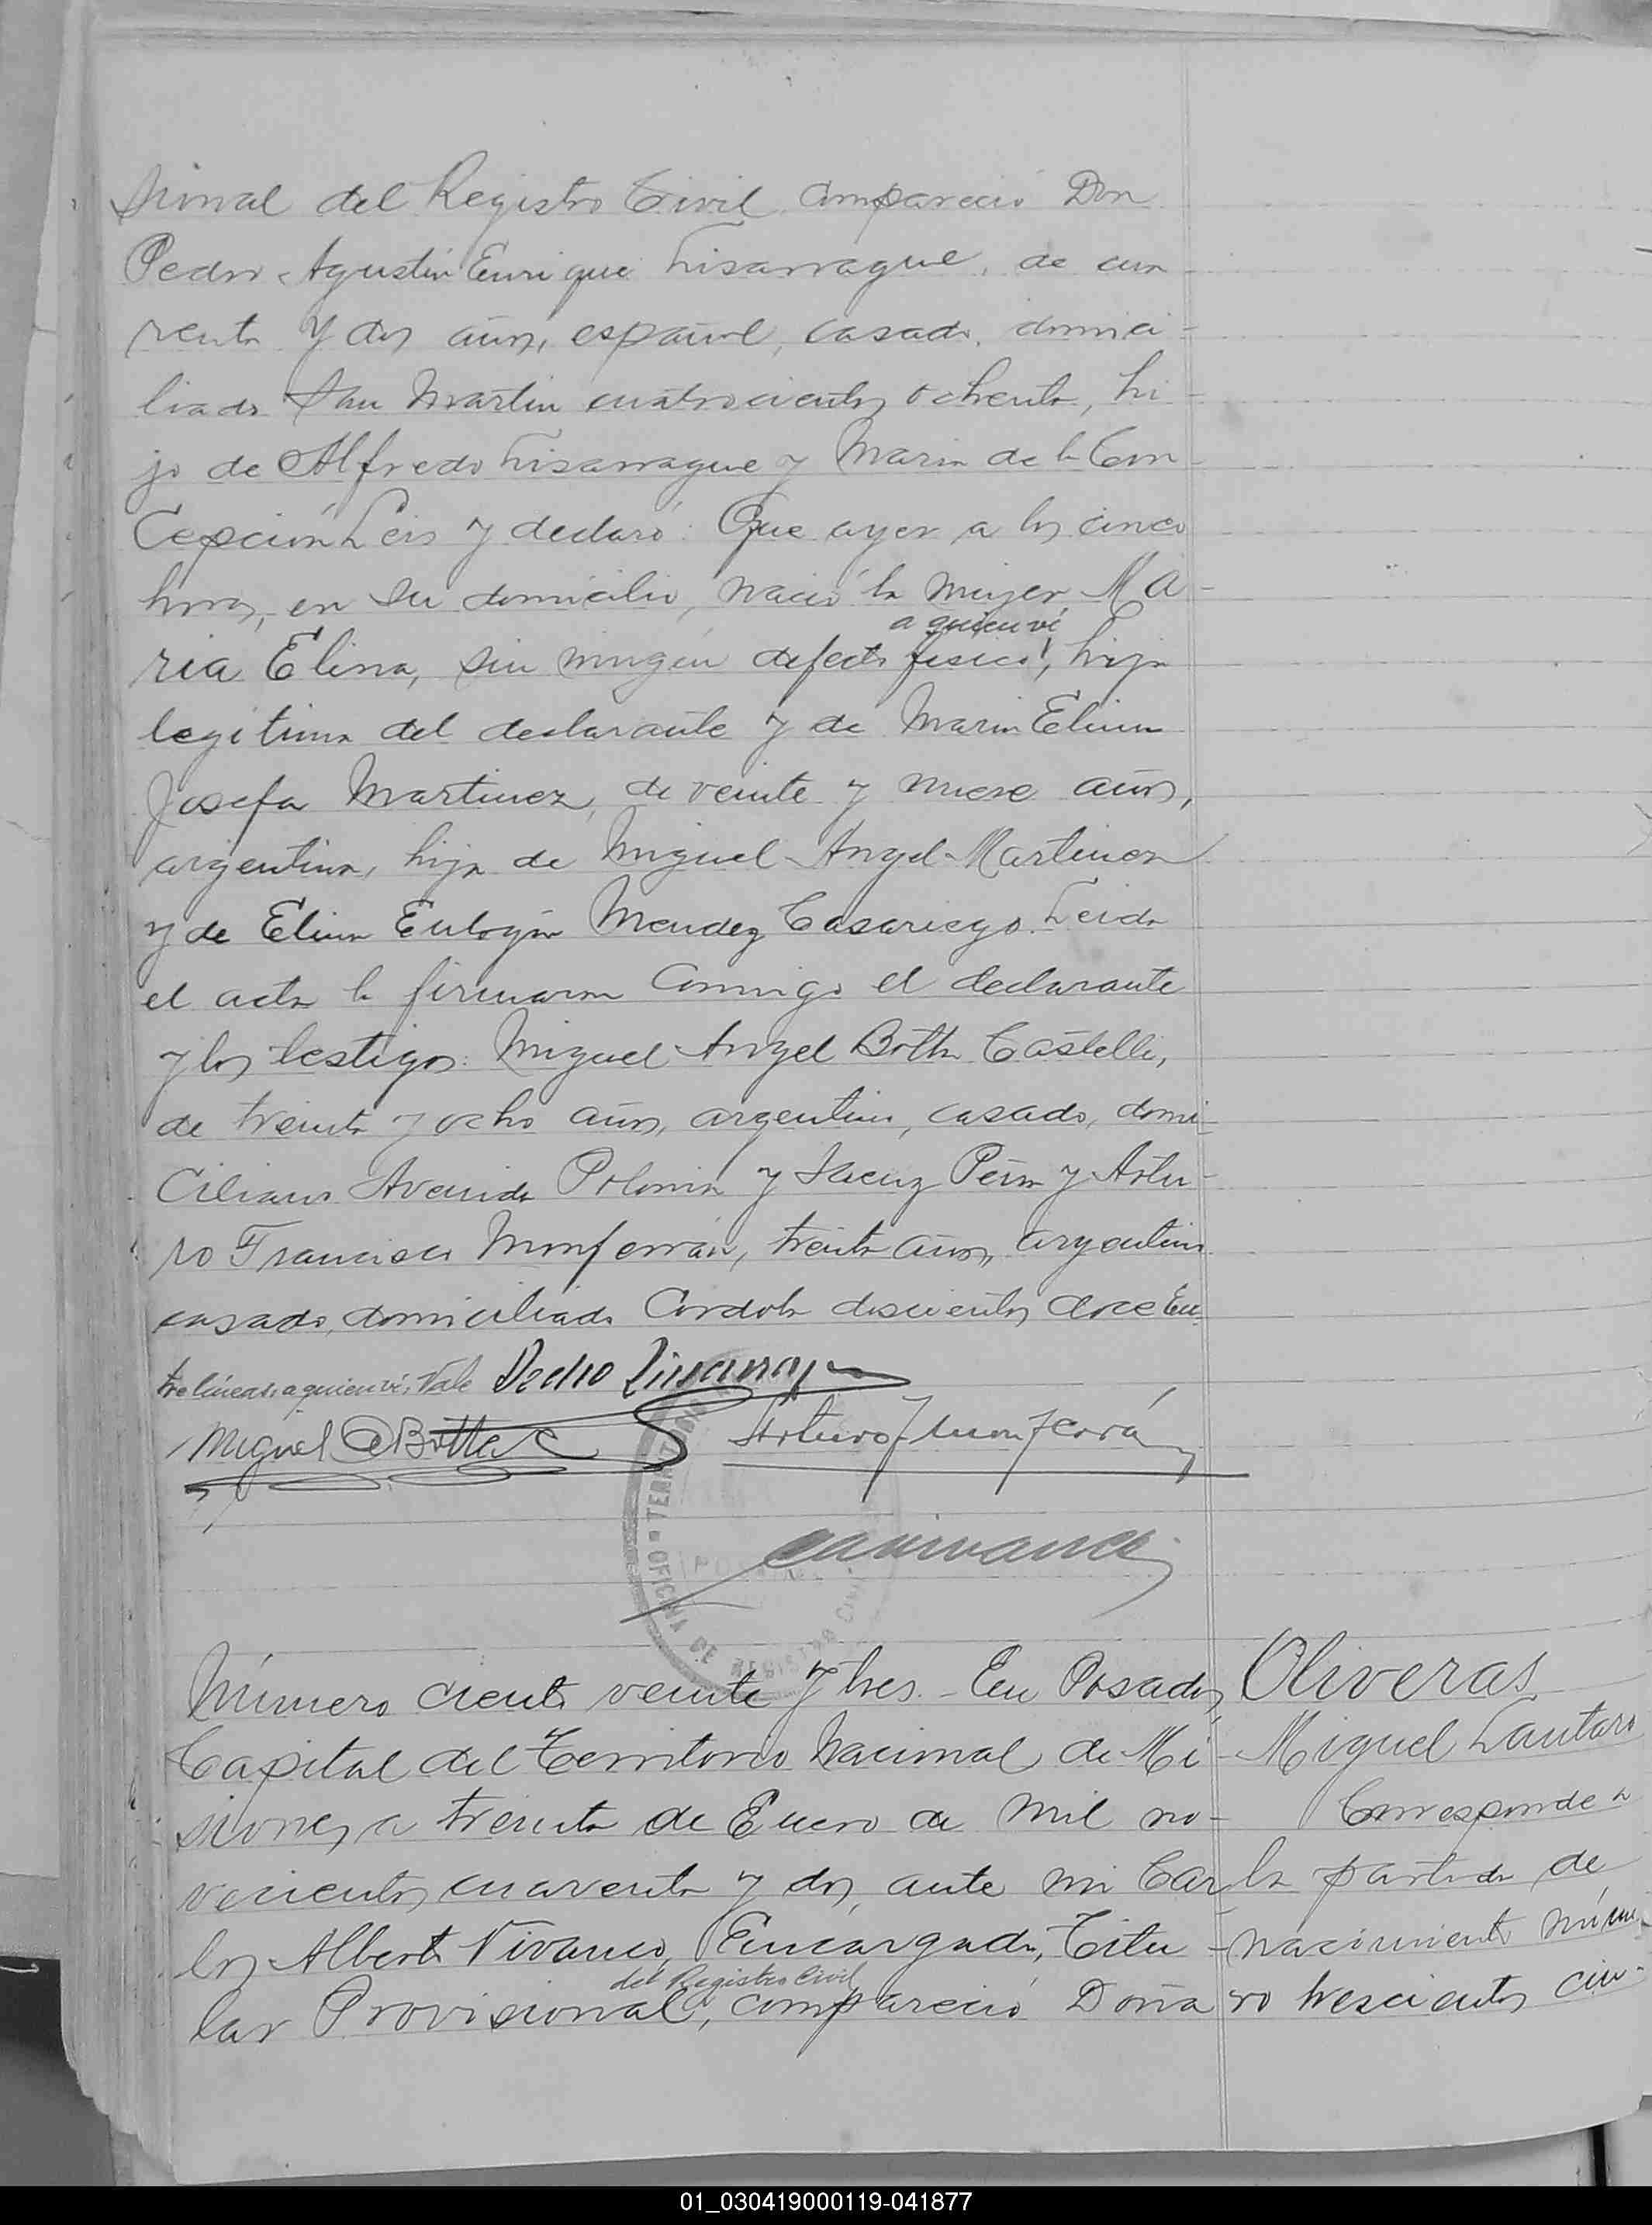 sional del Registro Civil compareció Don
Pedro Agustin Enrique Lisarrague, de cua-
renta y dos años, español, casado, domici-
liado San Martin cuatrocientos ochenta, hi-
jo de Alfredo Lisarrague y Maria de la Con-
cepción Leis y declaró: Que ayer a las cinco
horas, en su domicilio, nació la mujer Ma-
a quien ví
ria Elina, sin ningún defecto físico, hija
legitima del declarante y de Maria Elina
Josefa Martinez, de veinte y nueve años,
argentina, hija de Miguel Angel Martinez
y de Elina Eulogia Mendez Casariego. Leida
el acta la firmaron conmigo el declarante
y los testigos: Miguel Angel Botta Castelli,
de treinta y ocho años, argentino, casado, domi-
ciliado Avenida Polonia y Saenz Peña y Artu-
ro Francisco Monferrán, treinta años, argentino
casado, domiciliado Cordoba doscientos doce En
tre líneas: a quien ví: Vale Pedro Lisarrague
Miguel A Botta C Arturo F Monferrán
CAVivanco
TERRITORIO
OFICINA DE REGISTRO CIVIL
Número ciento veinte y tres.- En Posadas,
Capital del Territorio Nacional de Mi-
siones, a treinta de Enero de mil no-
vecientos cuarenta y dos, ante mi Car
los Alberto Vivanco, Encargado, Titu-
del Registro Civil
lar Provisional, compareció Doña
Oliveras
Miguel Lautaro
Corresponde a
la partida de
nacimiento núme
ro trescientos cin-
01_030419000119-041877